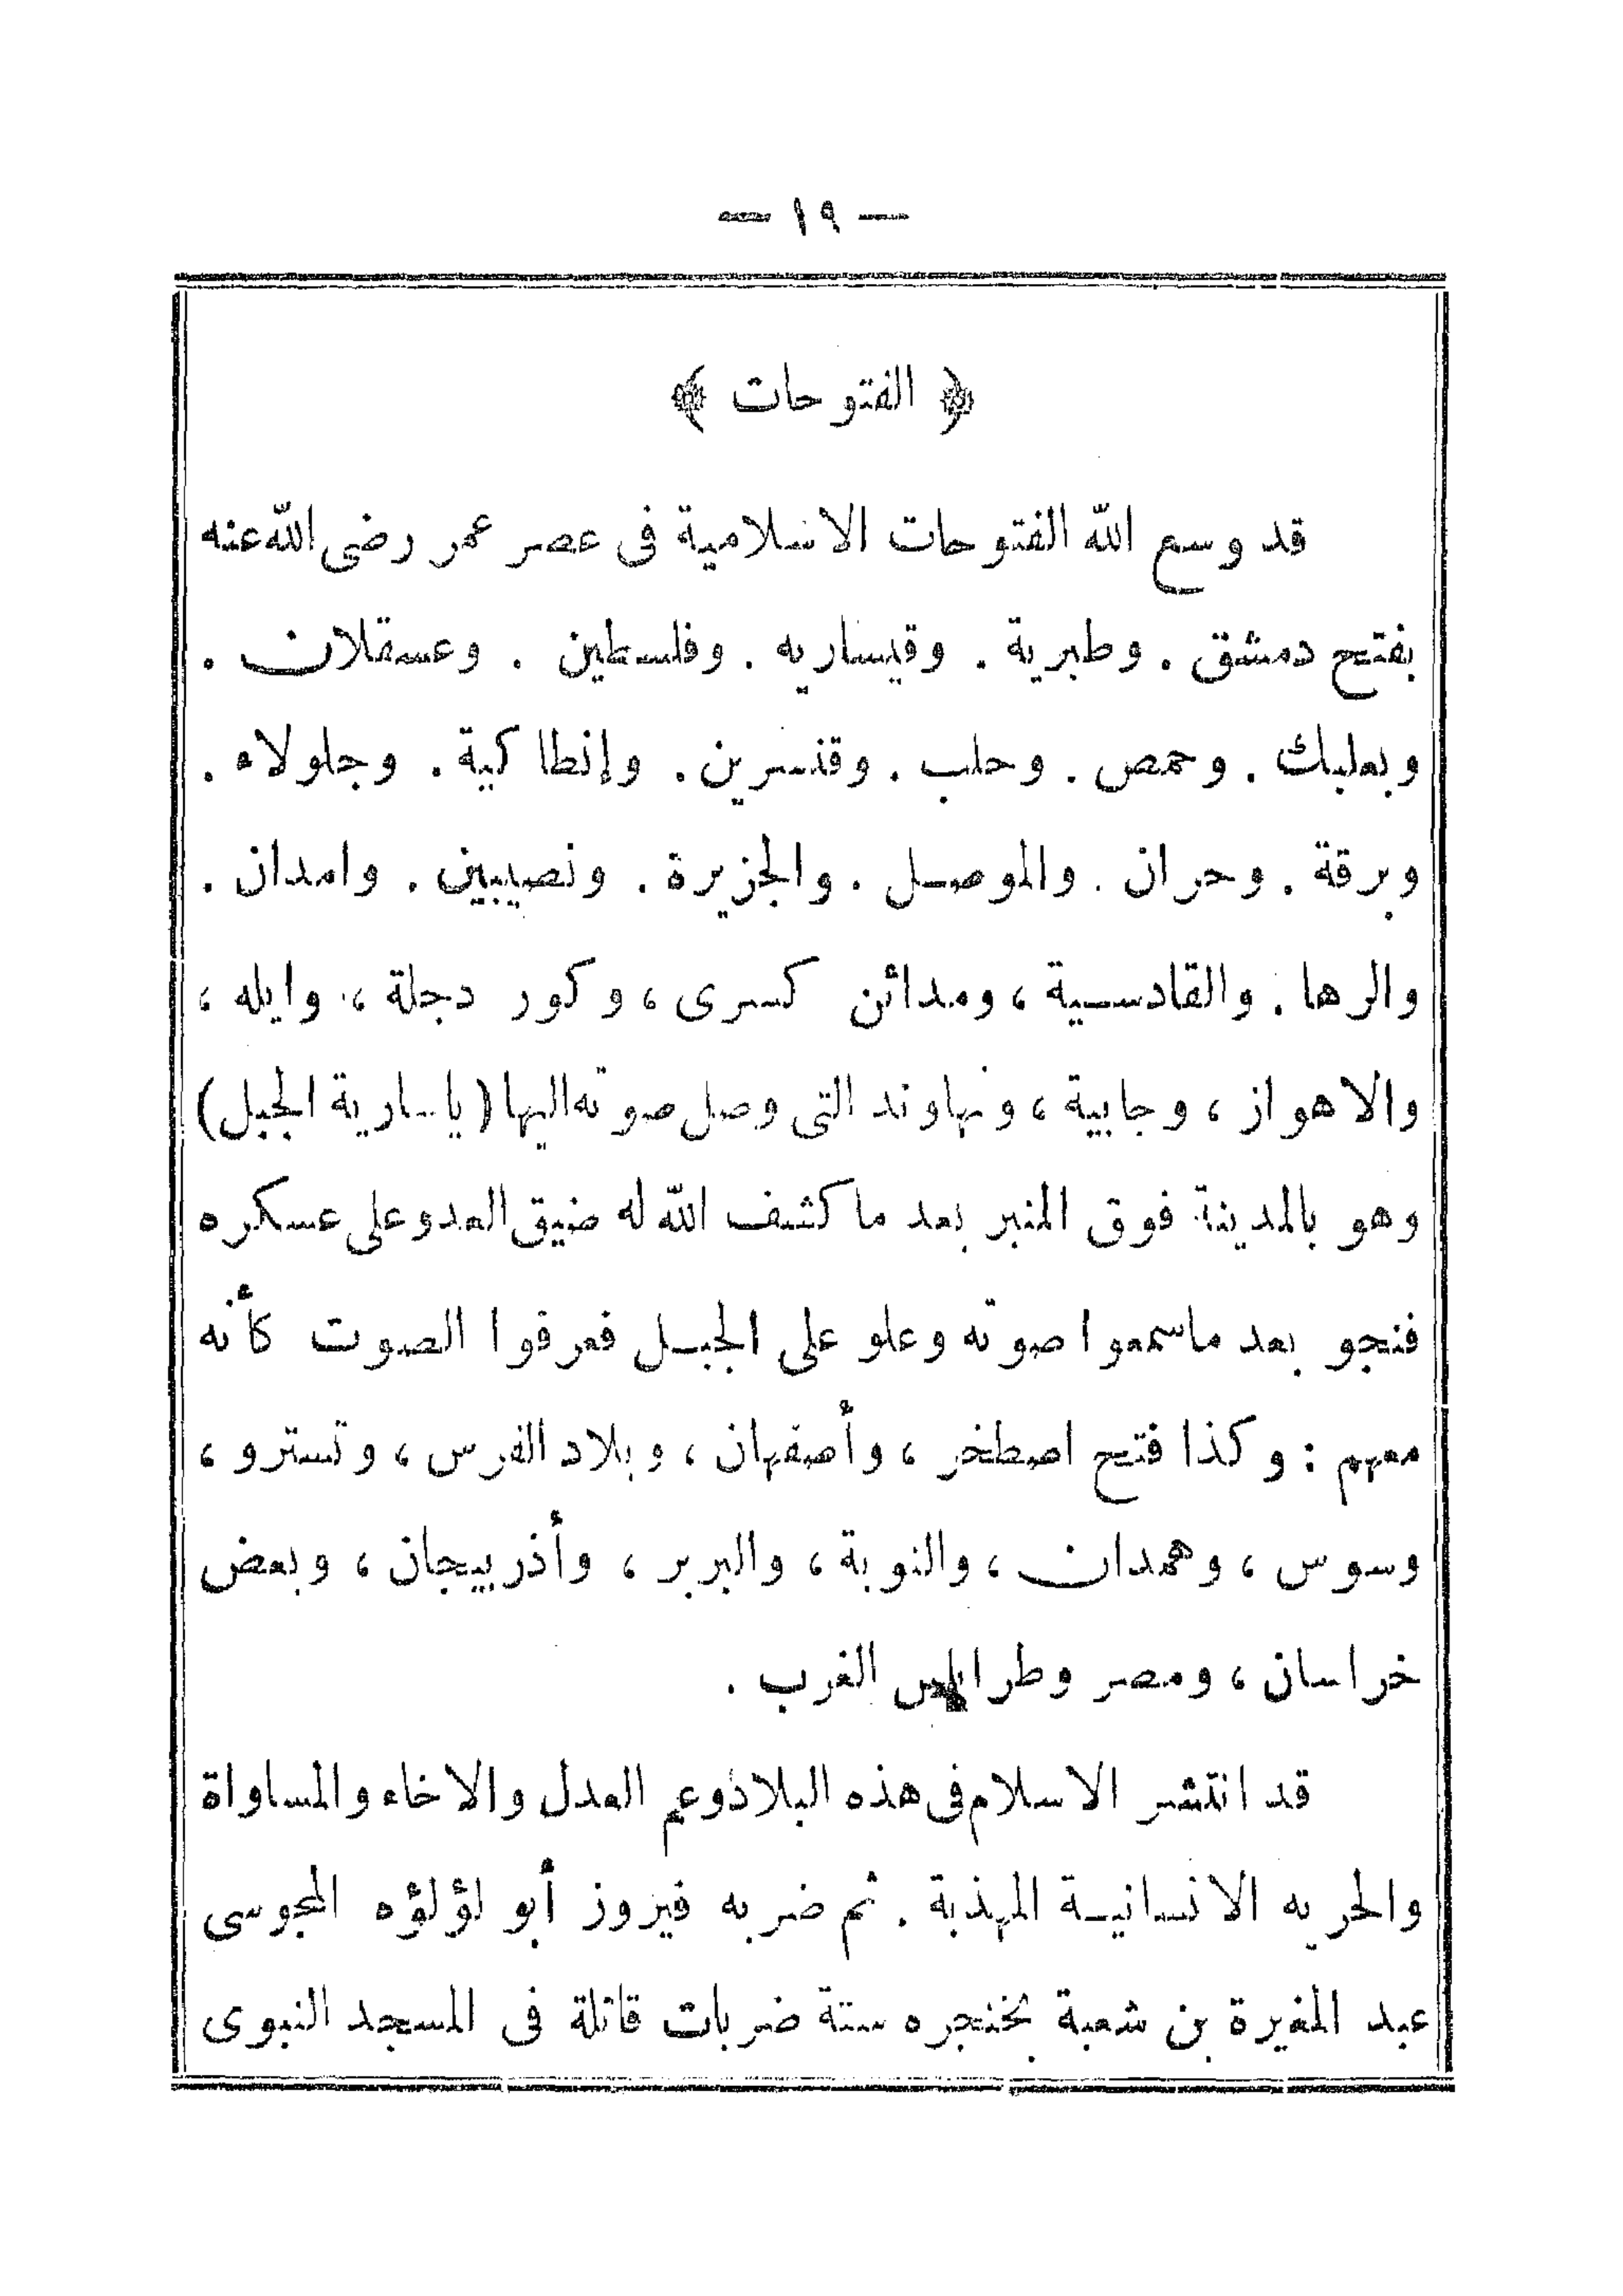 — ١٩ —
﴿ الفتوحات ﴾
قد وسع الله الفتوحات الاسلامية فى عصر عمر رضى الله عنه
بفتح دمشق . وطبرية . وقيساريه . وفلسطين . وعسقلان .
وبعلبك . وحمص . وحلب . وقنسرين . وإنطاكية . وجلولاء .
وبرقة . وحران . والموصل . والجزيرة . ونصيبين . وامدان .
والرها . والقادسية ، ومدائن كسرى ، وكور دجلة ، وايله ،
والاهواز ، وجابية ، ونهاوند التى وصل صوته اليها ( ياسارية الجبل )
وهو بالمدينة فوق المنبر بعد ما كشف الله له ضيق العدو على عسكره
فنجو بعد ماسمعوا صوته وعلو على الجبل فعرفوا الصوت كأنه
معهم : وكذا فتح اصطخر ، وأصفهان ، وبلاد الفرس ، وتسترو ،
وسوس ، وهمدان ، والنوبة ، والبربر ، وأذربيجان ، وبعض
خراسان ، ومصر وطرابلس الغرب .
قد انتشر الاسلام فى هذه البلاد وعم العدل والاخاء والمساواة
والحريه الانسانية المهذبة . ثم ضربه فيروز أبو لؤلؤه المجوسى
عبد المغيرة بن شعبة بخنجره ستة ضربات قاتلة فى المسجد النبوى